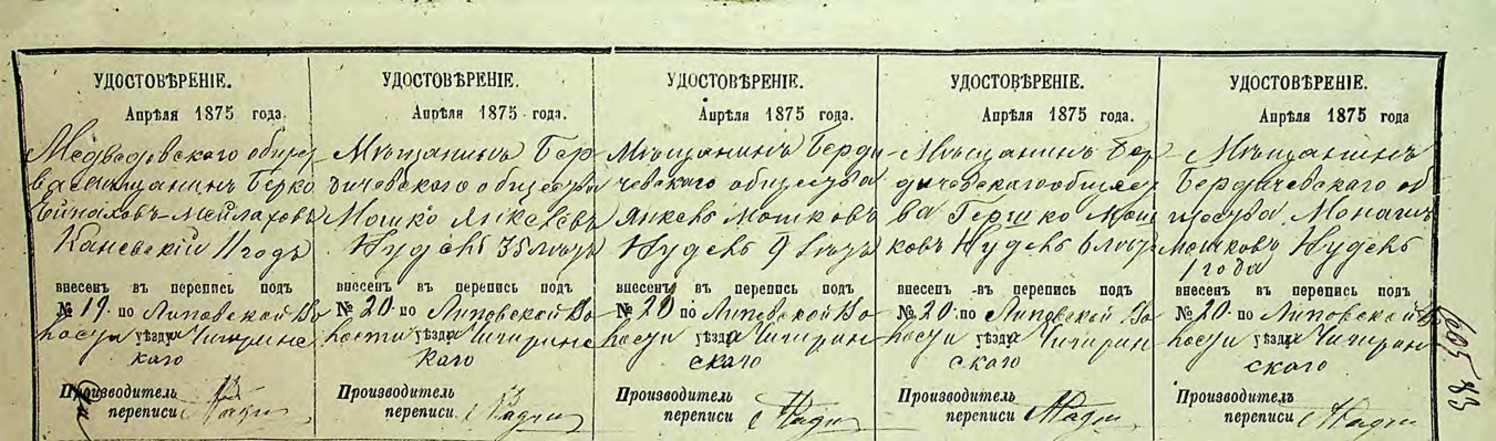 УДОСТОВѢРЕНІЕ.
Апрѣля 1875 года.
Медведовскаго общес-
ва мещанинъ Берко
Каневскій 11 годъ
внесенъ въ перепись подъ
№ 19. по Липовской Во
лости уѣзда Чигринс
каго
Производитель
переписи
УДОСТОВѢРЕНІЕ.
Апрѣля 1875 года.
Мѣщанинъ Бер-
дичевскаго общества
Мошко Янкелевъ
Нудель 35 лѣтъ
внесенъ въ перепись подъ
№ 20. по Липовской Во
лости уѣзда Чигринс
каго
Производитель
переписи
УДОСТОВѢРЕНІЕ.
Апрѣля 1875 года.
Мѣщанинъ Берди
чевскаго общества
Янкель Мошковъ
Нудель 9 лѣтъ
внесенъ въ перепись подъ
№ 20 по Липовской Во
лости уѣзда Чигирин
скаго
Производитель
переписи
УДОСТОВѢРЕНІЕ.
Апрѣля 1875 года.
Мѣщанинъ Бер
дичевскаго общест
ва Гершко Мош
ковъ Нудель 6 лѣтъ
внесенъ въ перепись подъ
№ 20. по Липовской Во
лости уѣзда Чигирин
скаго
Производитель
переписи
УДОСТОВѢРЕНІЕ.
Апрѣля 1875 года
Мѣщанинъ
Бердичевскаго об
щества
Мошковъ Нудель
1 года
внесенъ въ перепись подъ
№ 20. по Липовской Во
лости уѣзда Чигирин
скаго
Производитель
переписи